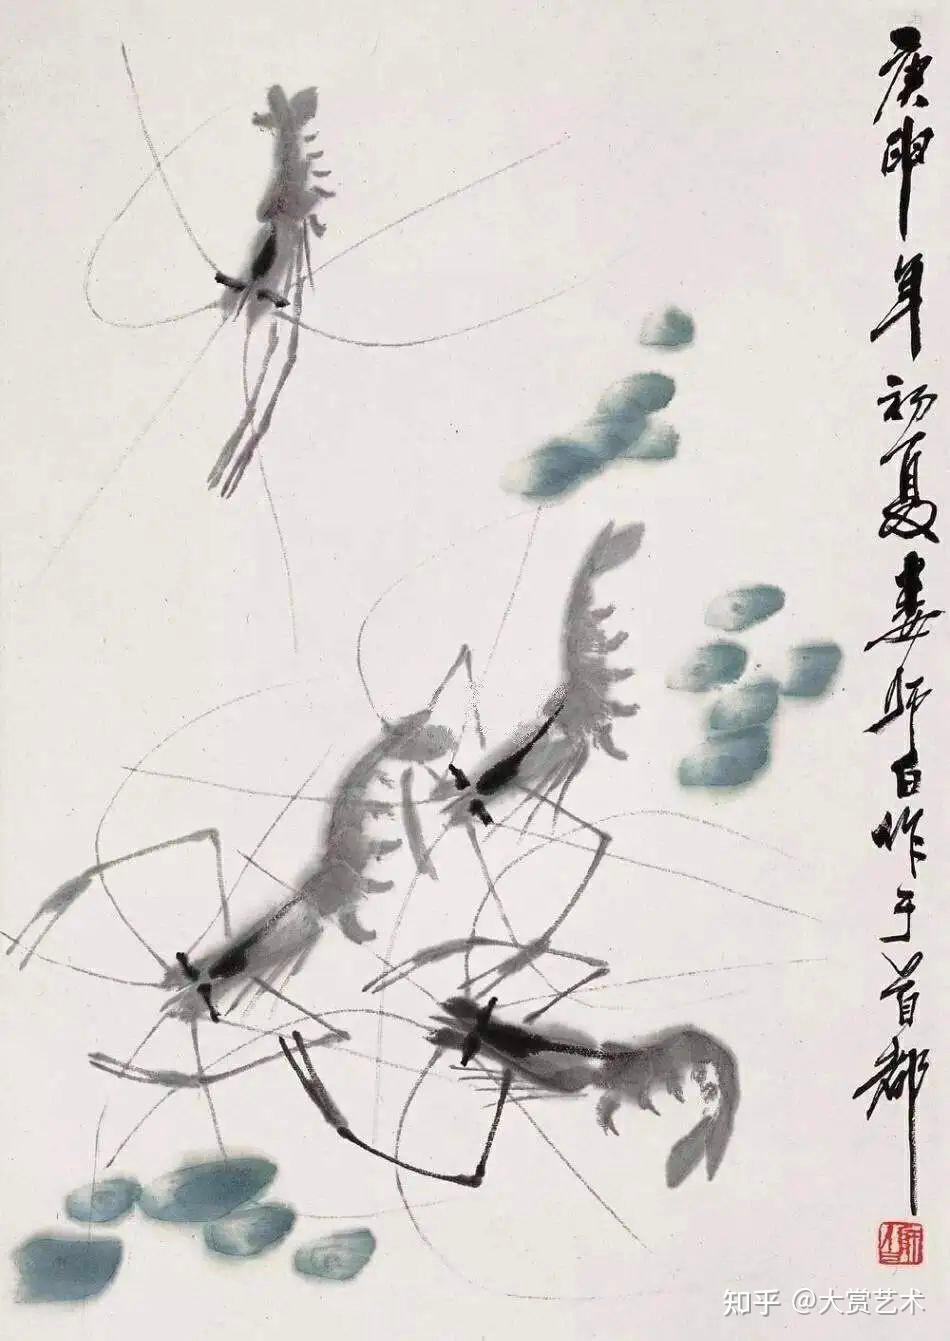 庚申年初夏娄师白作于首都
知乎 @大赏艺术